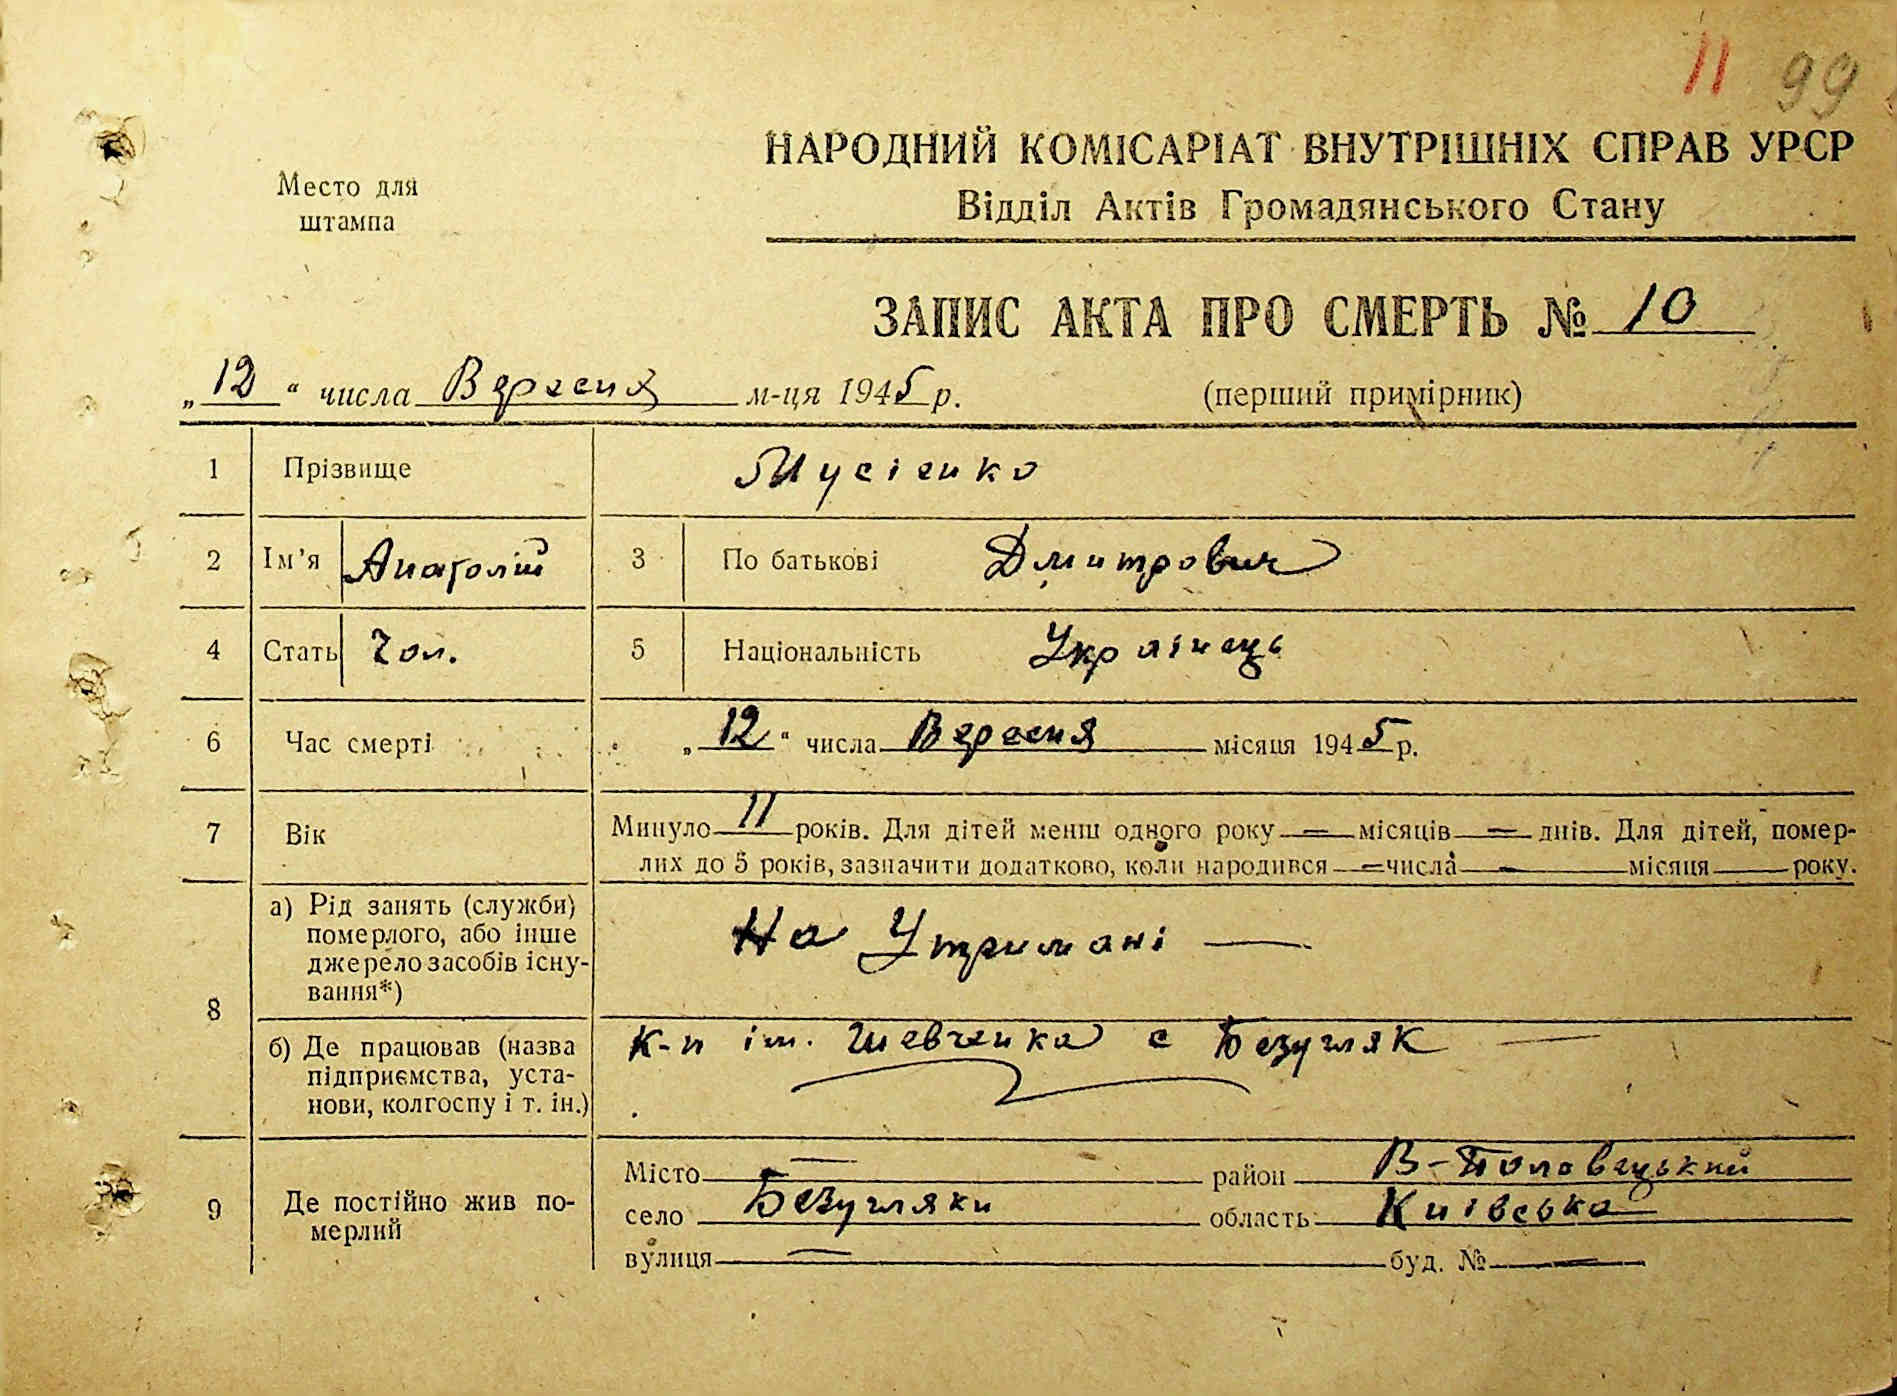 11 99
НАРОДНИЙ КОМІСАРІАТ ВНУТРІШНІХ СПРАВ УРСР
Место для
штампа
Відділ Актів Громадянського Стану
ЗАПИС АКТА ПРО СМЕРТЬ № 10
„12“ числа Вересня м-ця 1945 р. (перший примірник)
1 Прізвище Мусієнко
2 Ім’я Анатолій 3 По батькові Дмитрович
4 Стать Чол. 5 Національність Українець
6 Час смерті „12“ числа Вересня місяця 1945 р.
7 Вік Минуло 11 років. Для дітей менш одного року — місяців — днів. Для дітей, помер-
лих до 5 років, зазначити додатково, коли народився — числа — місяця — року.
8 а) Рід занять (служби)
померлого, або інше
джерело засобів існу-
вання*)
На Утримані —
б) Де працював (назва
підприємства, уста-
нови, колгоспу і т. ін.)
К-п ім. Шевченка с Безугляк —
9 Де постійно жив по-
мерлий
Місто — район В-Половецький
село Безугляки область Київська
вулиця — буд. № —